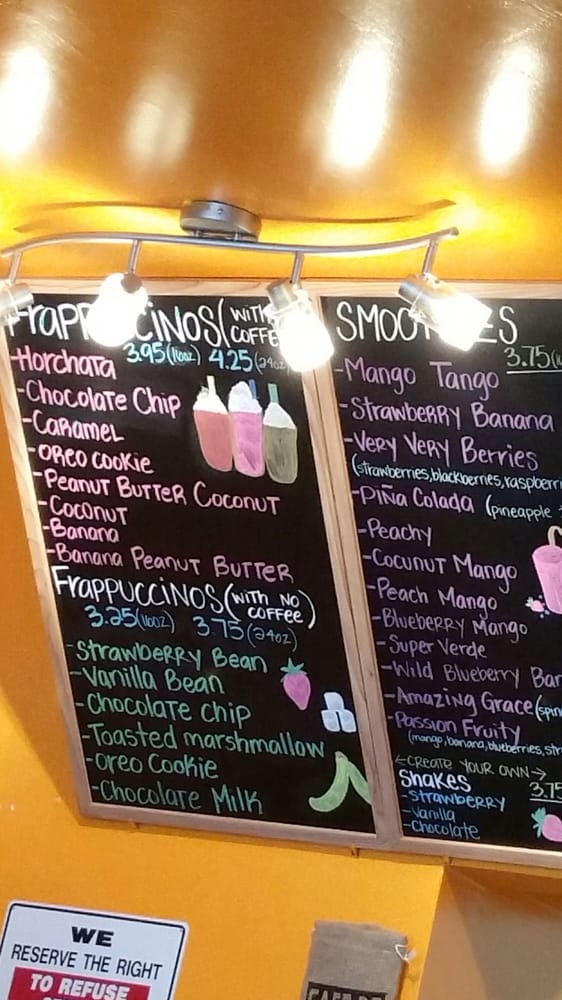 Frappuccinos (with
coffee
3.95(16oz) 4.25(24oz
-Horchata
-Chocolate Chip
-Caramel
-Oreo Cookie
-Peanut Butter Coconut
-Coconut
-Banana
-Banana Peanut Butter
Frappuccinos (with no
coffee)
3.25(16oz) 3.75(24oz)
-Strawberry Bean
-Vanilla Bean
-Chocolate Chip
-Toasted marshmallow
-Oreo Cookie
-Chocolate Milk
SMOOTHIES
3.75
-Mango Tango
-Strawberry Banana
-Very Very Berries
(strawberries, blackberries, raspberri
-Piña Colada (pineapple
-Peachy
-Cocunut Mango
-Peach Mango
-Blueberry Mango
-Super Verde
-Wild Blueberry Ban
-Amazing Grace (spin
-Passion Fruity
(mango, banana, blueberries, str
←CREATE YOUR OWN→
Shakes 3.75
-Strawberry
-Vanilla
-Chocolate
WE
RESERVE THE RIGHT
TO REFUSE